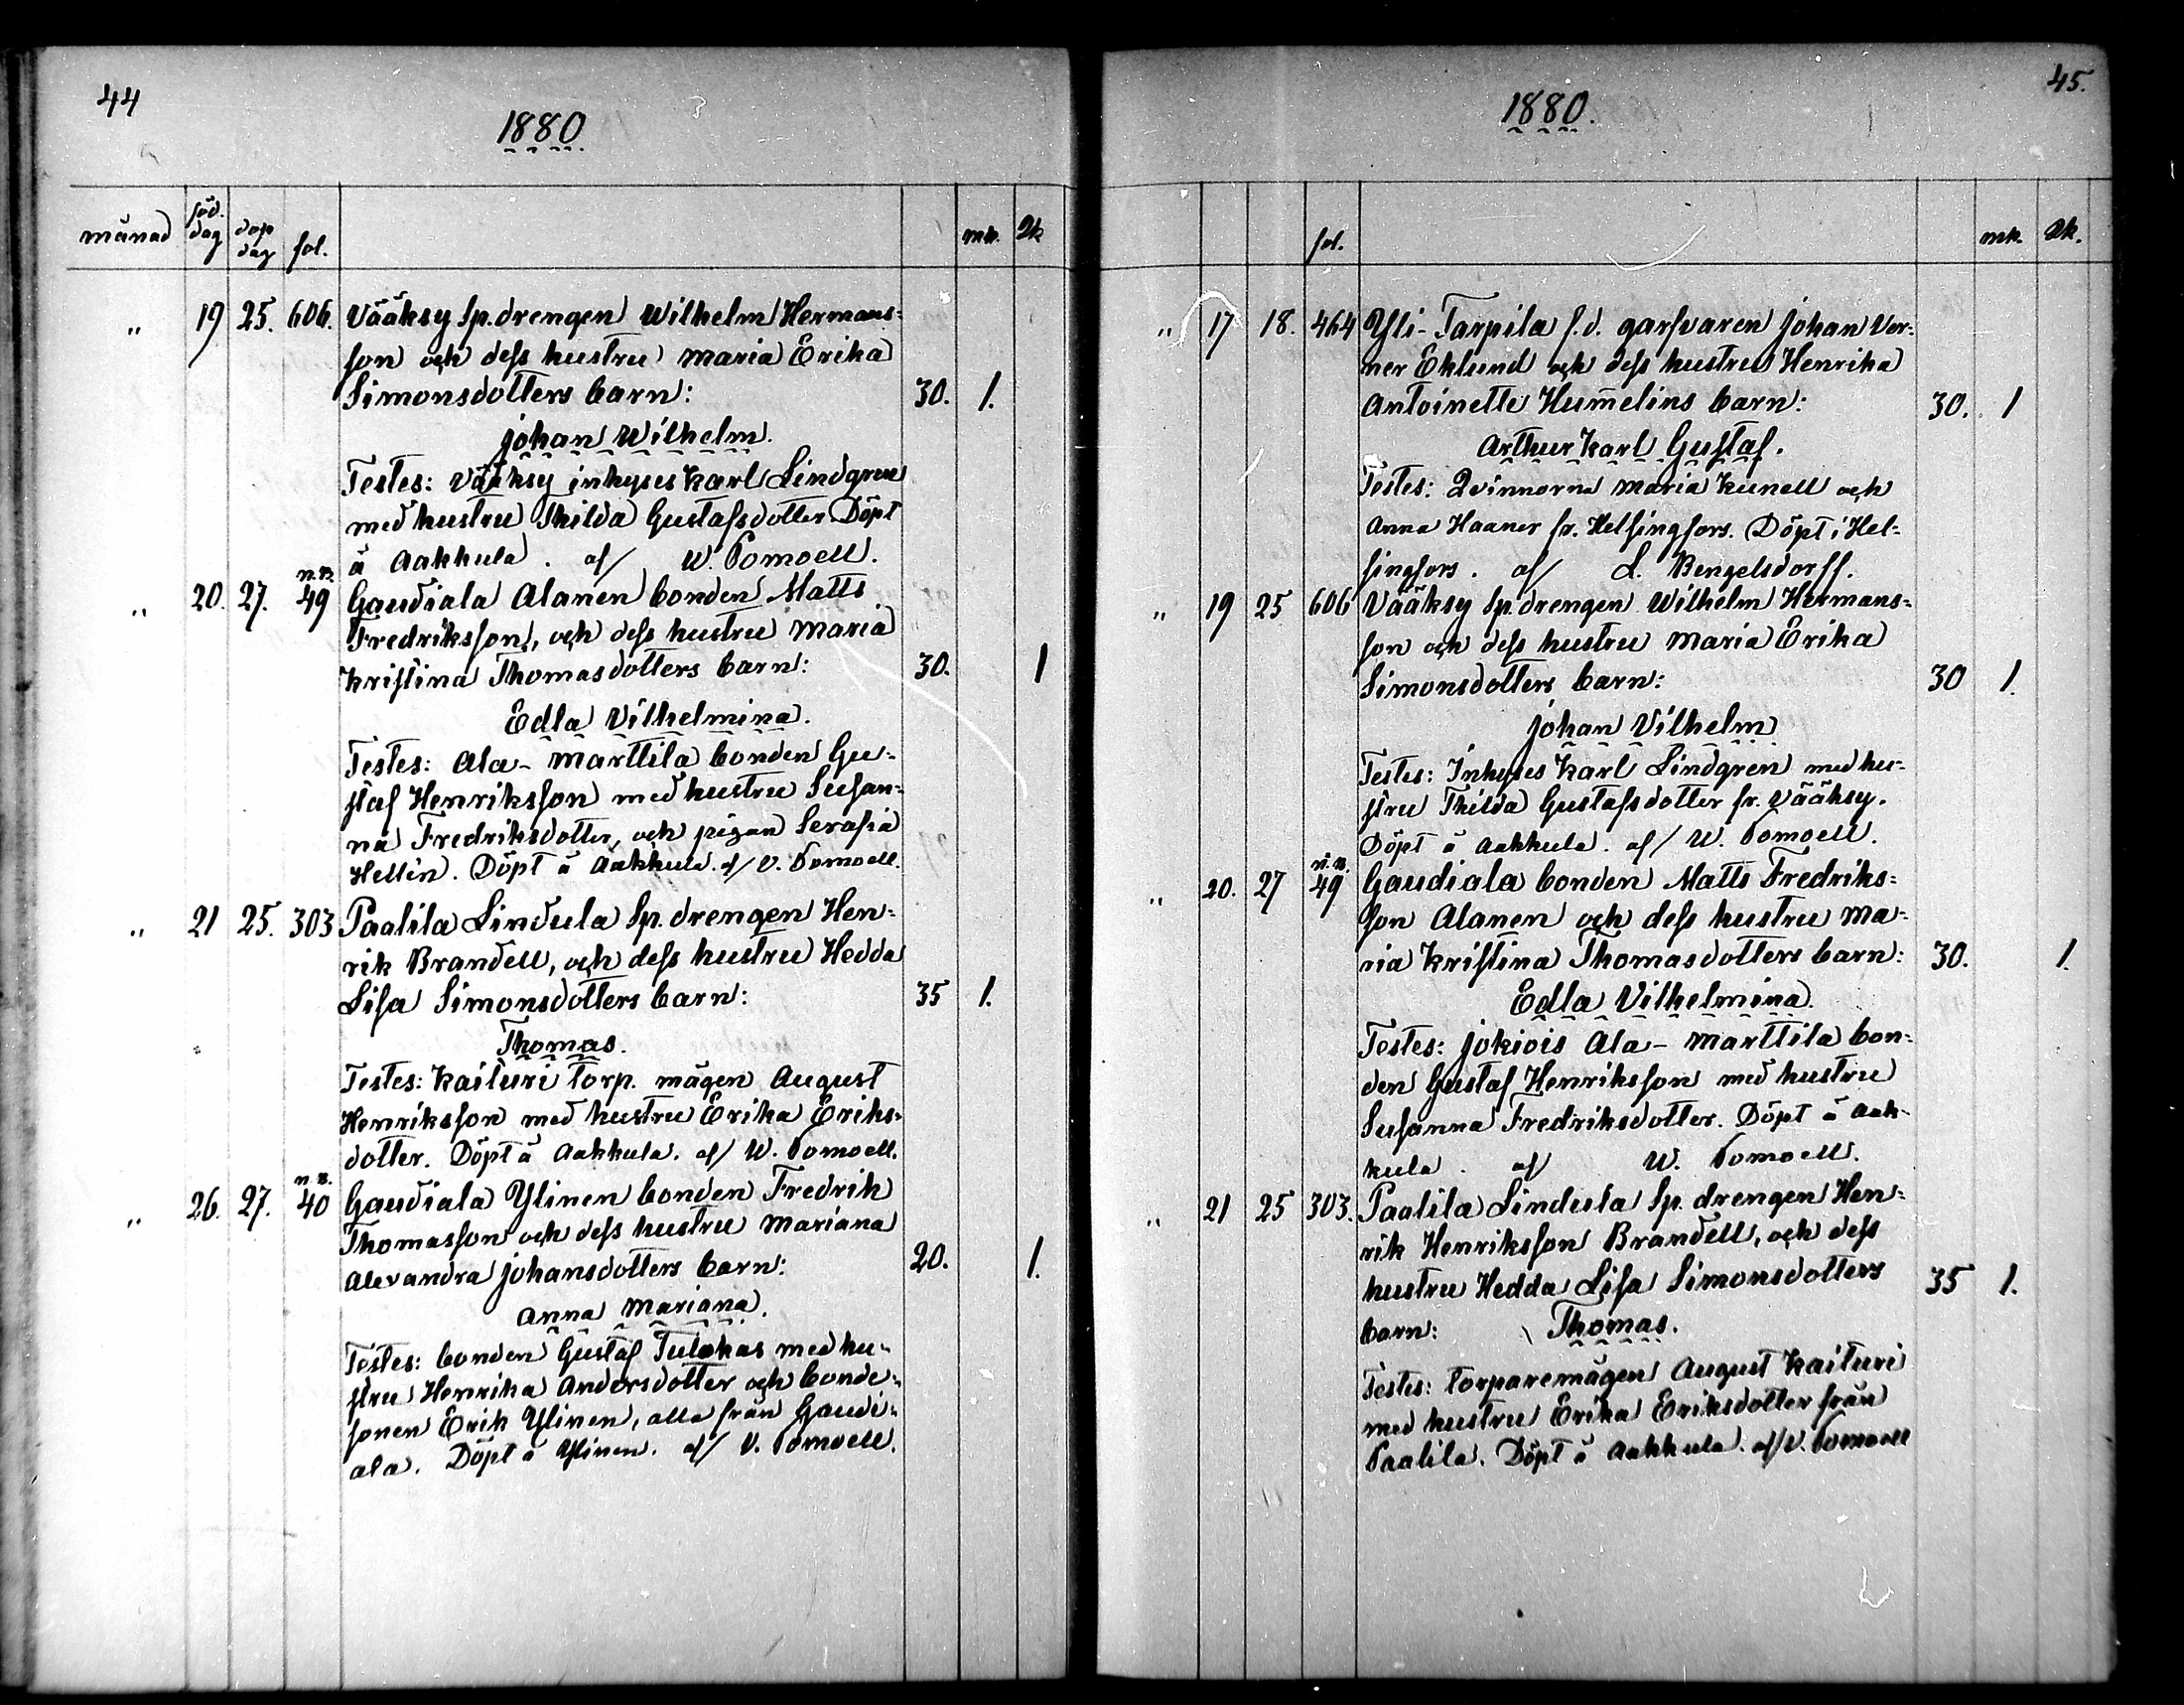 44
1880
månad föd. dag dop dag fol. mk. Qk
" 19 25. 606. Vääksy Sp.drengen Wilhelm Hermans-
son och dess hustru Maria Erika
Simonsdotters barn: 30. 1.
Johan Wilhelm.
Testes: Vääksy inhyses Karl Lindgren
med hustru Thilda Gustafsdotter Döpt
å Aakkula. af/ W. Pomoell.
" 20. 27. n.B. 49 Gaudiala Alanen bonden Matts
Fredriksson, och dess hustru Maria
Kristina Thomasdotters barn: 30. 1
Edla Vilhelmina.
Testes: Ala-Marttila bonden Gu-
staf Henriksson med hustru Susan-
na Fredriksdotter, och pigan Serafia
Hellin. Döpt å Aakkula. af/ V. Pomoell.
" 21 25. 303 Paalila Lindula Sp. drengen Hen-
rik Brandell, och dess hustru Hedda
Lisa Simonsdotters barn: 35 1.
Thomas.
Testes: Kaituri torp. mågen August
Henriksson med hustru Erika Eriks-
dotter. Döpt å Aakkula. af/ W. Pomoell.
" 26. 27. n.B. 40 Gaudiala Ylinen bonden Fredrik
Thomasson och dess hustru Mariana
Alexandra Johansdotters barn: 20. 1.
Anna Mariana.
Testes: bonden Gustaf Tulokas med hu-
stru Henrika Andersdotter och bonde-
sonen Erik Ylinen, alla från Gaudi-
ala. Döpt å Ylinen. af/ V. Pomoell.
45.
1880.
fol. mk. Qk.
" 17 18. 464 Yli-Tarpila f.d. garfvaren Johan Ver-
ner Eklund och dess hustru Henrika
Antoinette Hum̅elins barn: 30. 1
Arthur Karl Gustaf.
Testes: Qvinnorna Maria Kunell och
Anna Haaner fr. Helsingfors. Döpt i Hel-
singfors. af/ L. Bengelsdorff.
" 19 25 606 Vääksy Sp.drengen Wilhelm Hermans-
son och dess hustru Maria Erika
Simonsdotters barn: 30 1.
Johan Vilhelm
Testes: Inhyses Karl Lindgren med hu-
stru Thilda Gustafsdotter fr. Vääksy.
Döpt å Aakkula. af/ W. Pomoell.
" 20. 27 n.B. 49 Gaudiala bonden Matts Fredriks-
son Alanen och dess hustru Ma-
ria Kristina Thomasdotters barn: 30. 1.
Edla Vilhelmina.
Testes: Jokiois Ala-Marttila bon-
den Gustaf Henriksson med hustru
Susanna Fredriksdotter. Döpt å Aak-
kula. af W. Pomoell.
" 21 25 303. Paalila Lindula Sp. drengen Hen-
rik Henriksson Brandell, och dess
hustru Hedda Lisa Simonsdotters 35 1.
barn: Thomas.
Testes: torparemågen August Kaituri
med hustru Erika Eriksdotter från
Paalila. Döpt å Aakkula. af/V. Pomoell